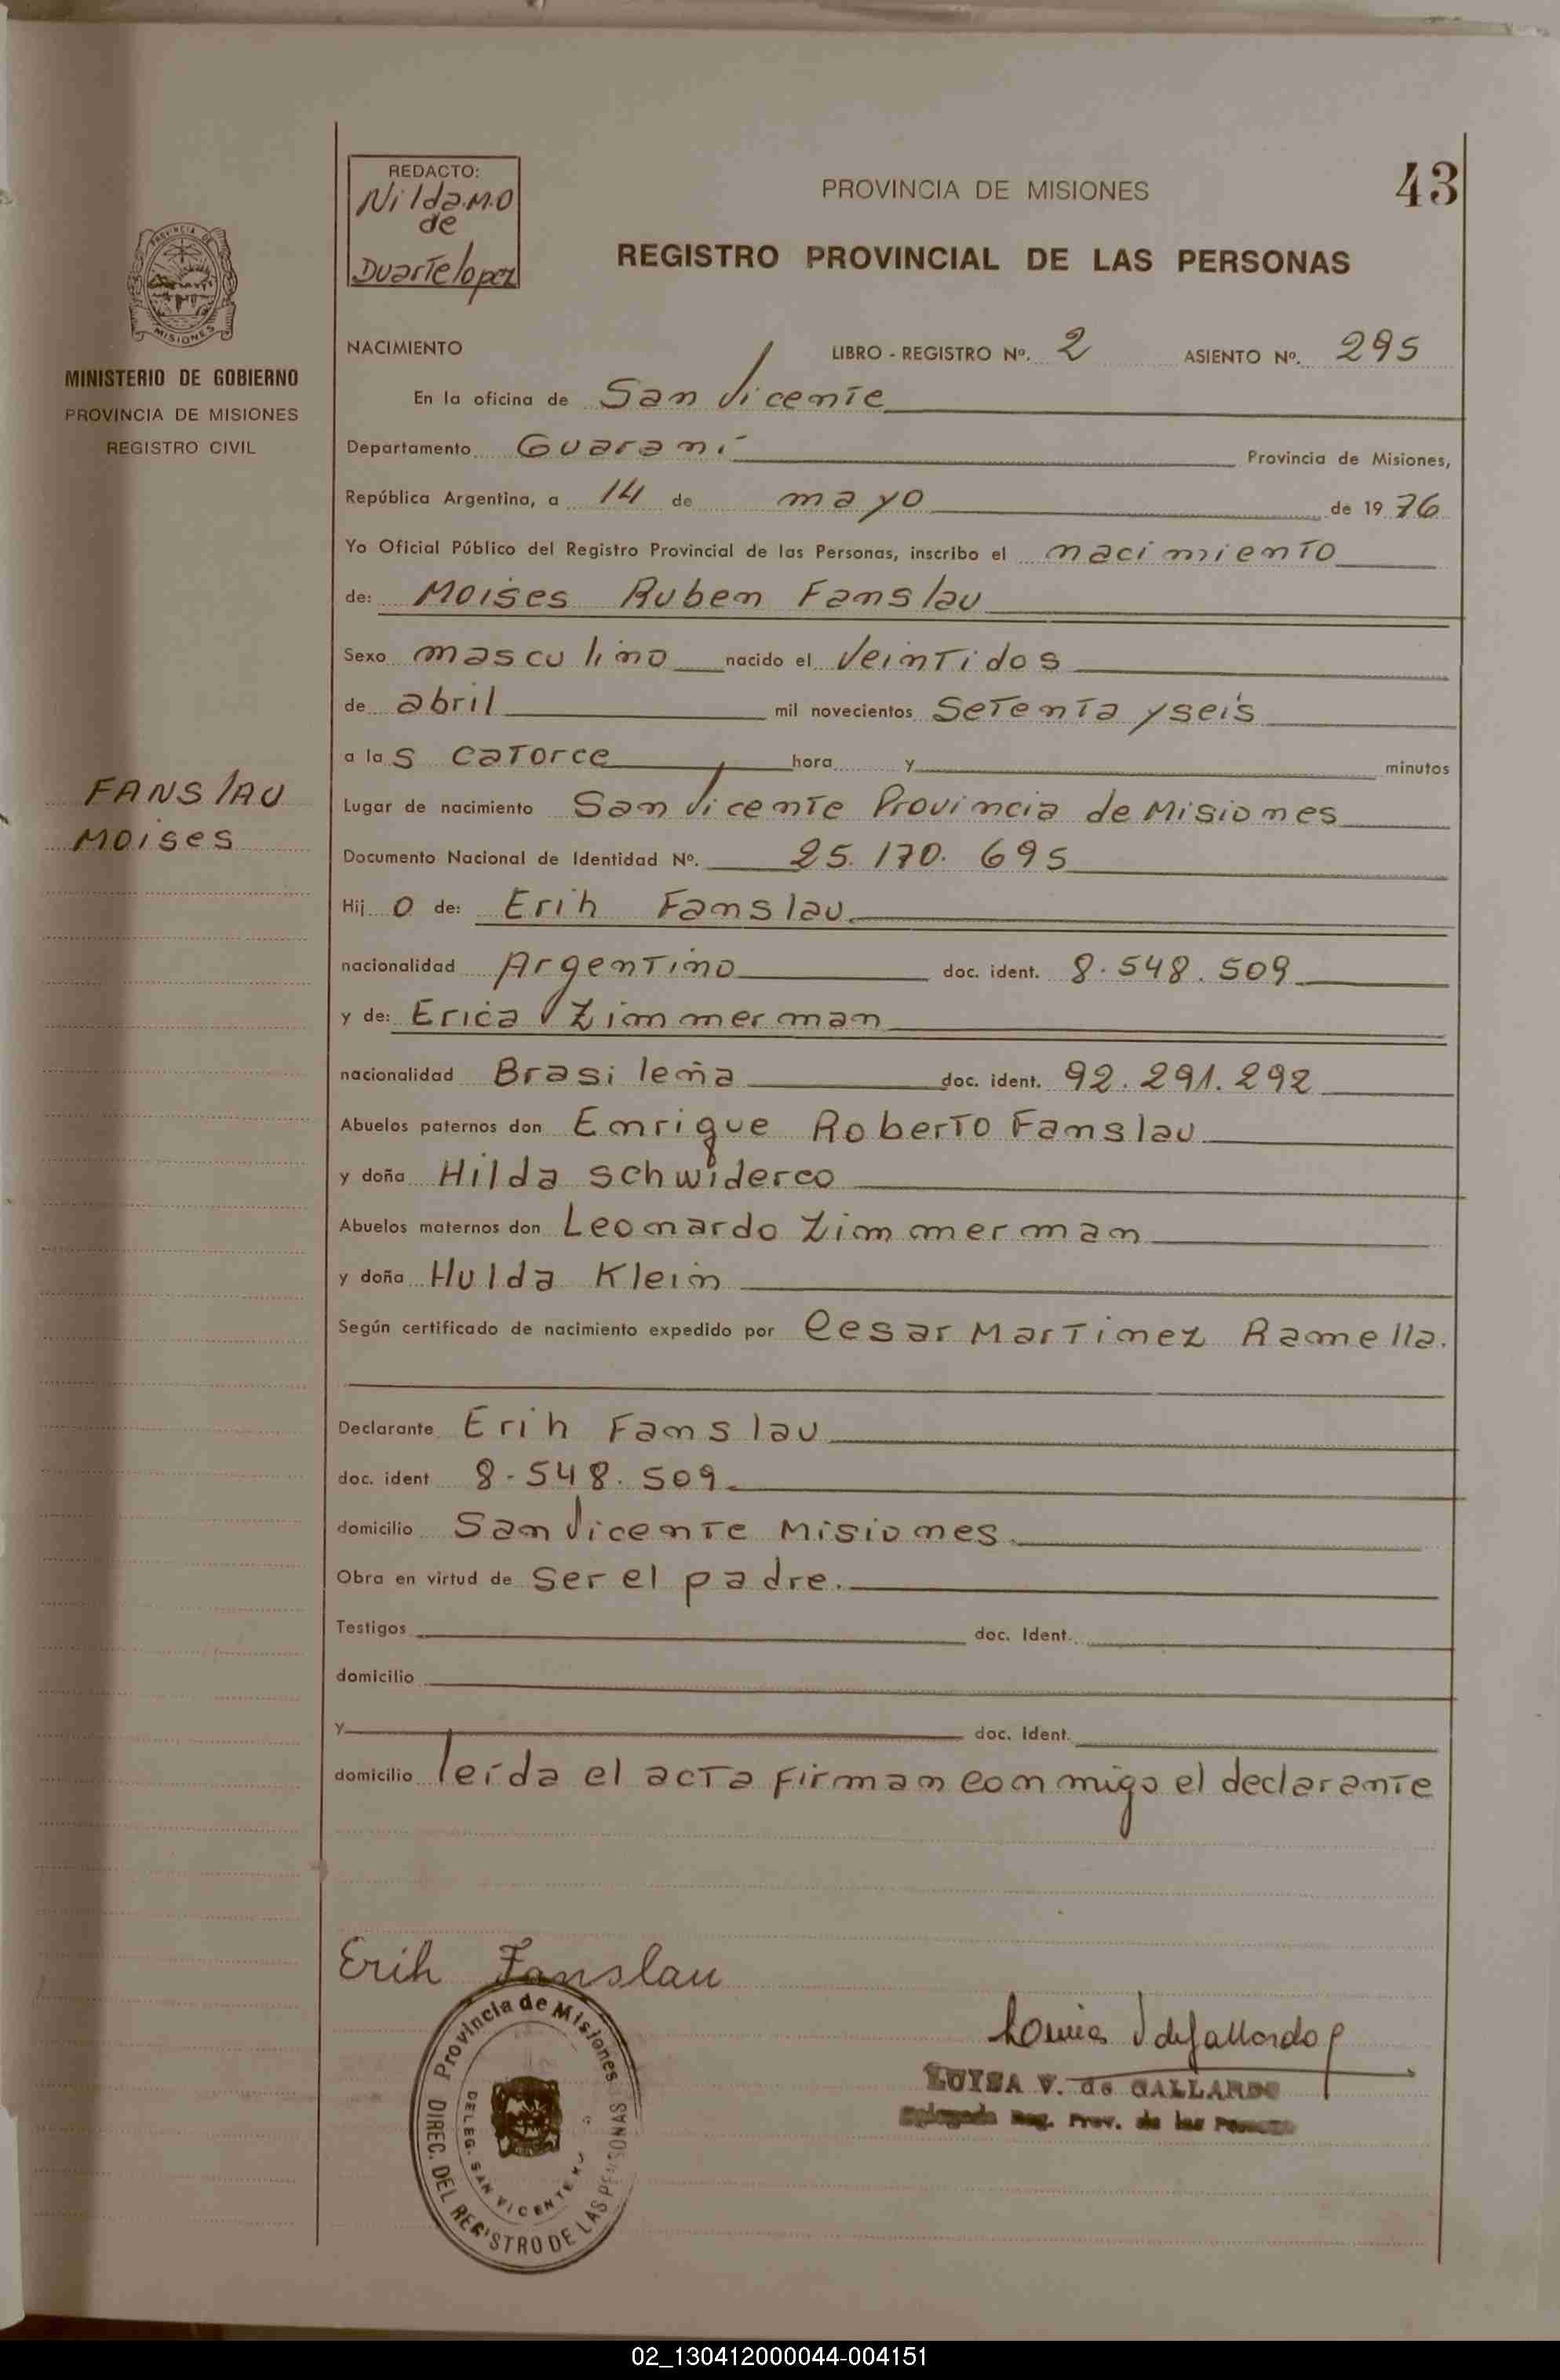 REDACTO:
Nilda M.O
de
Duarte lopez
PROVINCIA DE MISIONES
43
REGISTRO PROVINCIAL DE LAS PERSONAS
PROVINCIA DE
MISIONES
MINISTERIO DE GOBIERNO
PROVINCIA DE MISIONES
REGISTRO CIVIL
NACIMIENTO LIBRO - REGISTRO Nº. 2 ASIENTO Nº. 295
En la oficina de San Vicente
Departamento Guaraní Provincia de Misiones,
República Argentina, a 14 de mayo de 1976
Yo Oficial Público del Registro Provincial de las Personas, inscribo el nacimiento
de: Moises Ruben Fanslau
Sexo masculino nacido el Veintidos
de abril mil novecientos Setenta y seis
a las catorce hora y minutos
FANSlAU
Moises
Lugar de nacimiento San Vicente Provincia de Misiones
Documento Nacional de Identidad Nº. 25.170.695
Hijo de: Erih Fanslau
nacionalidad Argentino doc. ident. 8.548.509
y de: Erica Zimmerman
nacionalidad Brasileña doc. ident. 92.291.292
Abuelos paternos don Enrique Roberto Fanslau
y doña Hilda schwiderco
Abuelos maternos don Leonardo Zimmerman
y doña Hulda Klein
Según certificado de nacimiento expedido por Cesar Martinez Ramella.
Declarante Erih Fanslau
doc. ident 8-548.509
domicilio San Vicente Misiones.
Obra en virtud de Ser el padre.
Testigos doc. Ident.
domicilio
y doc. Ident.
domicilio leída el acta firman conmigo el declarante
Erih Fanslau
Provincia de Misiones
DIREC. DEL REGISTRO DE LAS PERSONAS
DELEG. SAN VICENTE
LUISA V. de GALLARDO
Delegada Reg. Prov. de las Personas
02_130412000044-004151